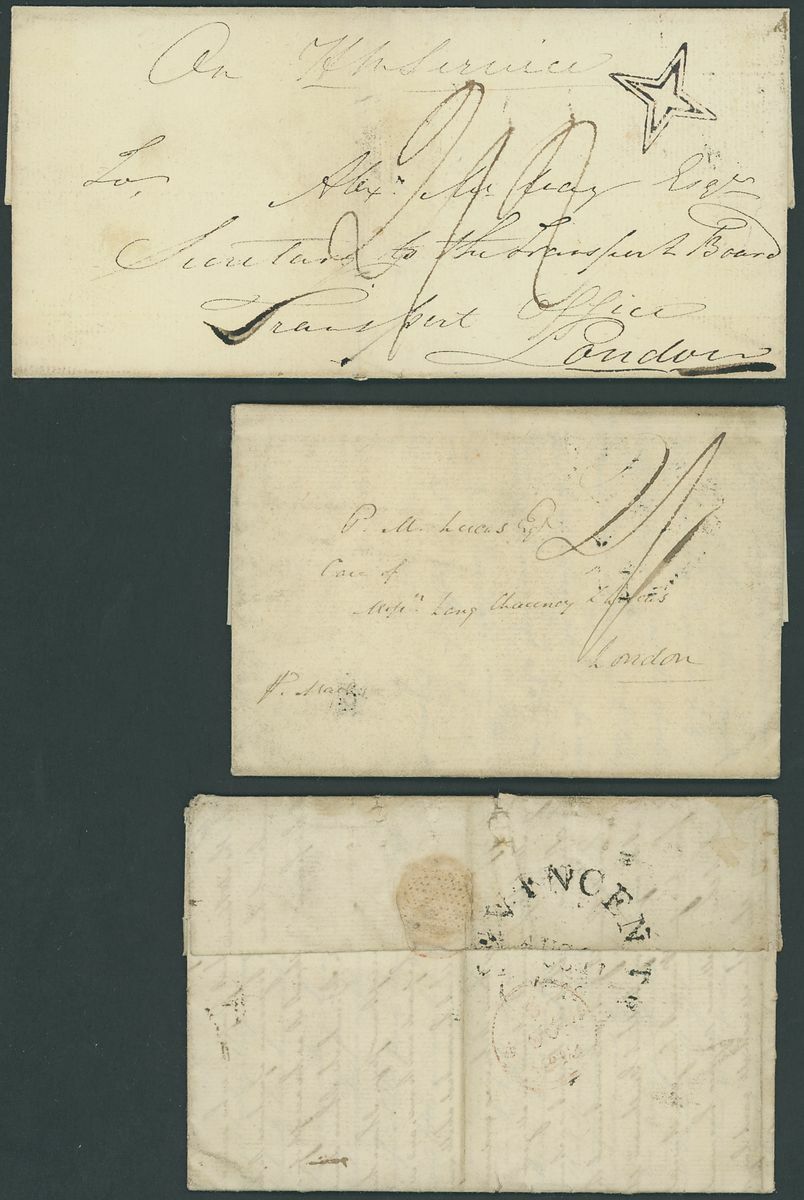 On H M Service
To, Alexr. Mc.Leay Esqr
Secretary to the Transport Board
Transport Office
London
P. M. Lucas Esqr
Care of
Messrs. Lang Chauncy & Lucas
London
pr.
VINCENT